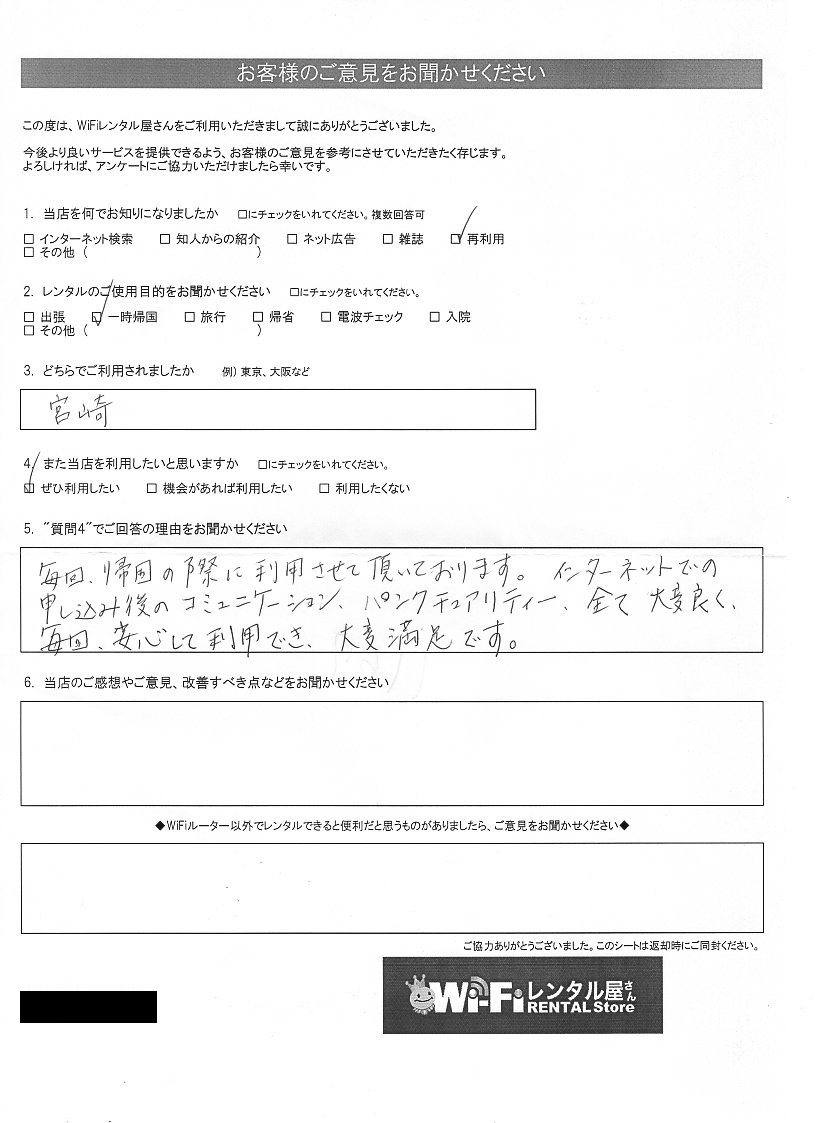 お客様のご意見をお聞かせください
この度は、WiFiレンタル屋さんをご利用いただきまして誠にありがとうございました。
今後より良いサービスを提供できるよう、お客様のご意見を参考にさせていただきたく存じます。
よろしければ、アンケートにご協力いただけましたら幸いです。
1. 当店を何でお知りになりましたか □にチェックをいれてください。複数回答可
□ インターネット検索 □ 知人からの紹介 □ ネット広告 □ 雑誌 ☑ 再利用
□ その他（ ）
2. レンタルのご使用目的をお聞かせください □にチェックをいれてください。
□ 出張 ☑ 一時帰国 □ 旅行 □ 帰省 □ 電波チェック □ 入院
□ その他（ ）
3. どちらでご利用されましたか 例）東京、大阪など
宮崎
4. また当店を利用したいと思いますか □にチェックをいれてください。
☑ ぜひ利用したい □ 機会があれば利用したい □ 利用したくない
5. “質問4”でご回答の理由をお聞かせください
毎回、帰国の際に利用させて頂いております。インターネットでの
申し込み後のコミュニケーション、パンクチュアリティー、全て大変良く、
毎回、安心して利用でき、大変満足です。
6. 当店のご感想やご意見、改善すべき点などをお聞かせください
◆WiFiルーター以外でレンタルできると便利だと思うものがありましたら、ご意見をお聞かせください◆
ご協力ありがとうございました。このシートは返却時にご同封ください。
Wi-Fiレンタル屋さん
RENTAL Store